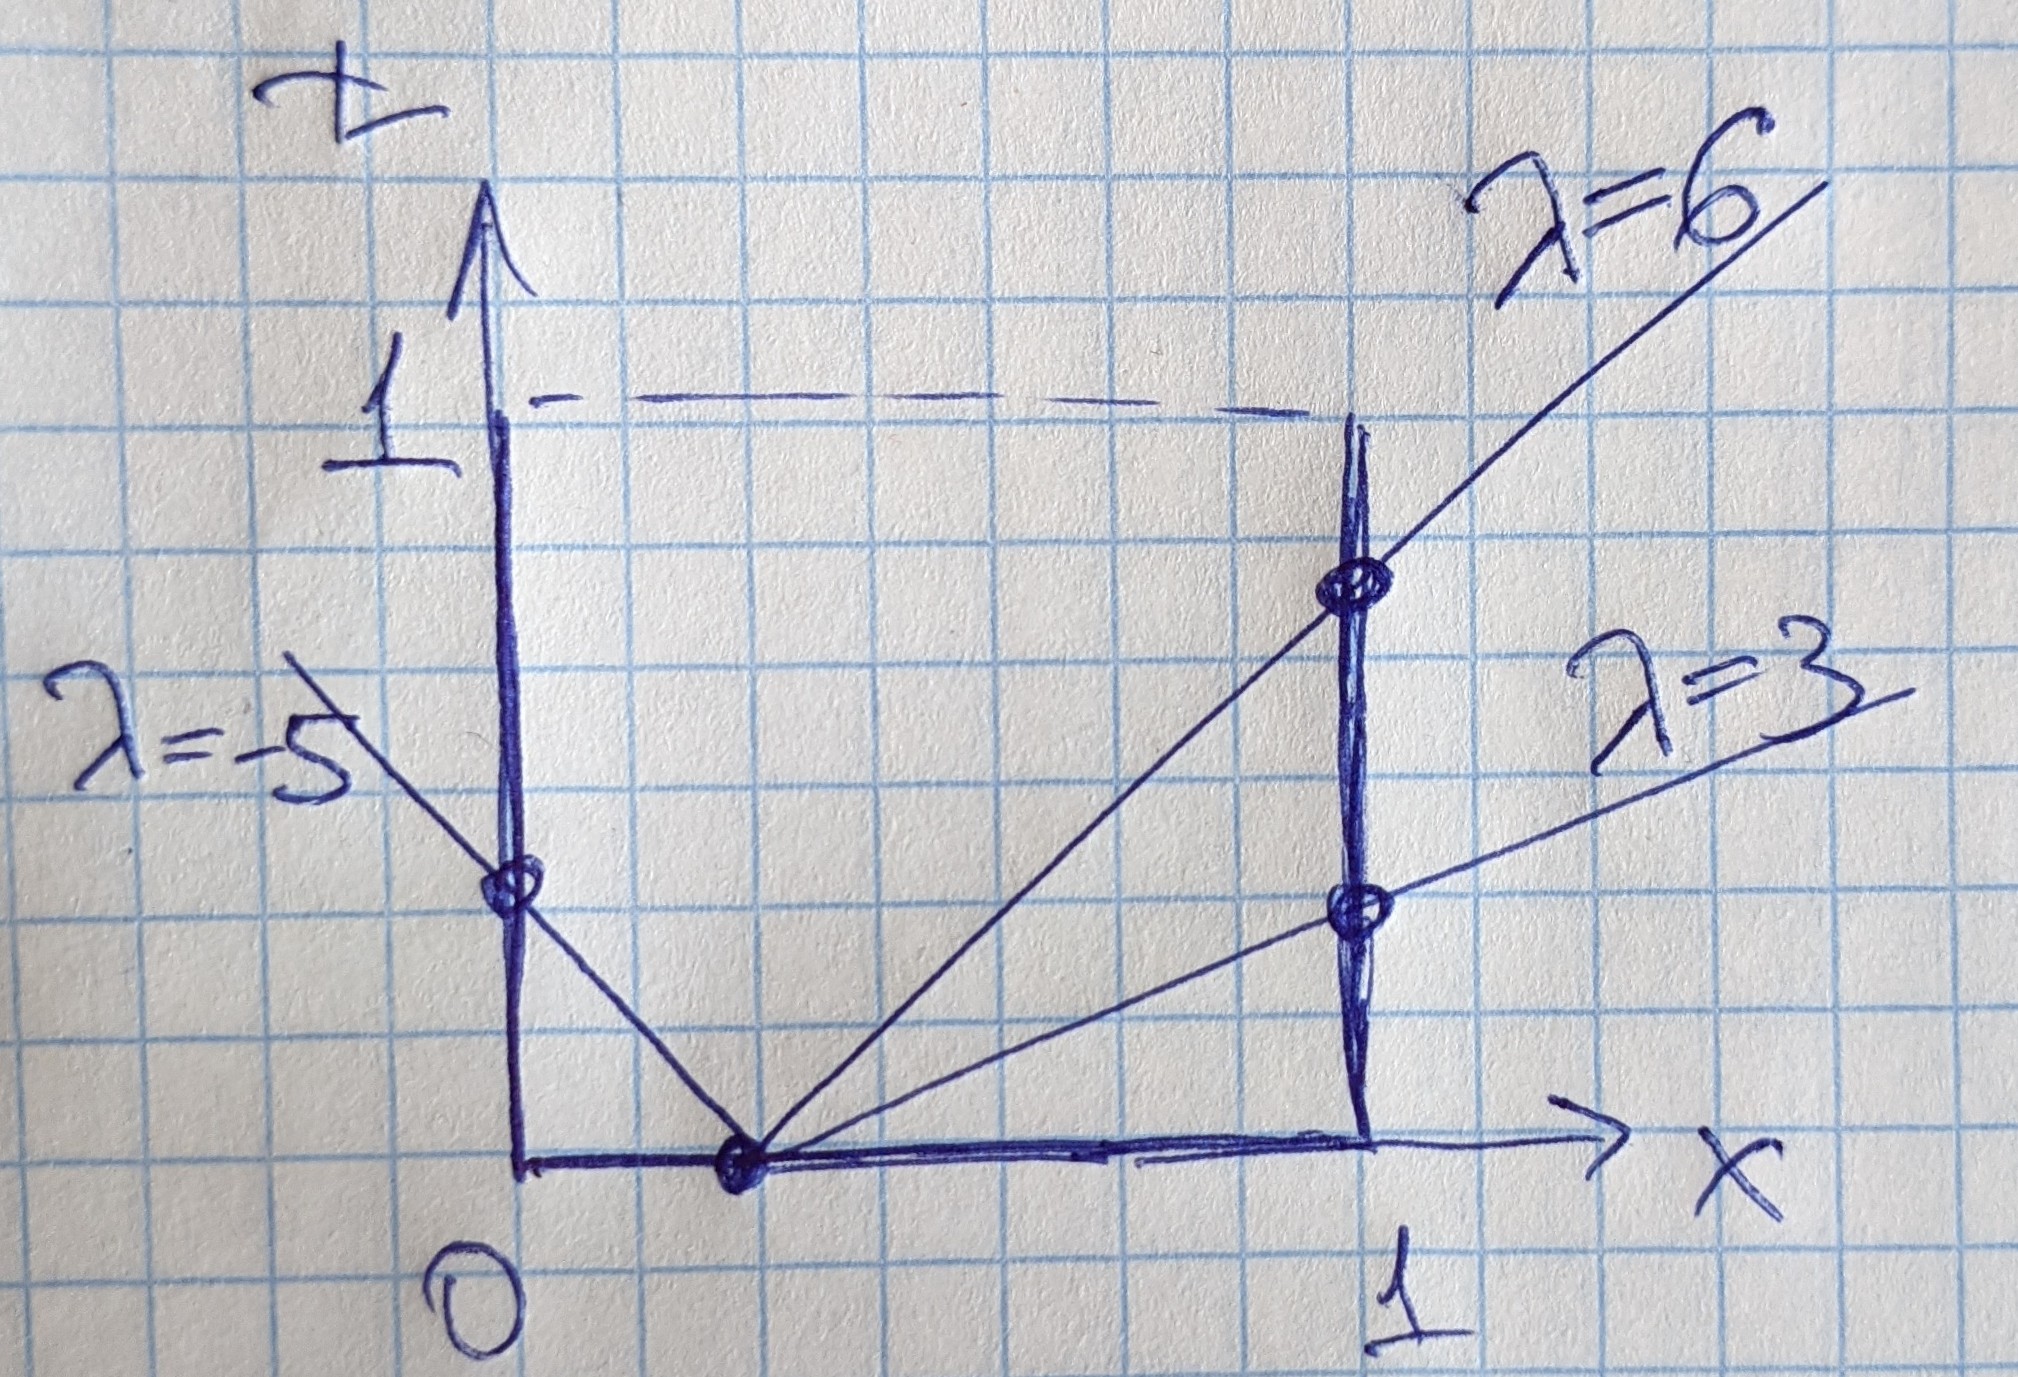 t
λ=6
1
λ=3
λ=-5
x
0
1